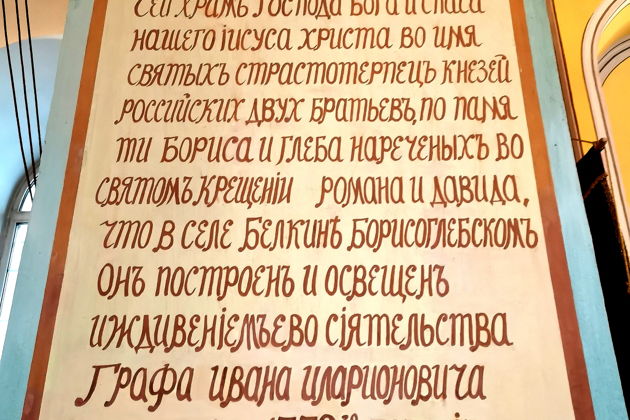 Сей храмъ Господа Бога и Спаса
нашего Іисуса Христа во имя
святыхъ страстотерпецъ князей
россійскихъ двух братьевъ, по памя
ти Бориса и Глеба нареченыхъ во
святомъ крещеніи Романа и Давида,
что в селе Белкинѣ Борисоглебскомъ
Онъ построенъ и освещенъ
иждивеніемъ его сіятельства
Графа Ивана Иларионовича